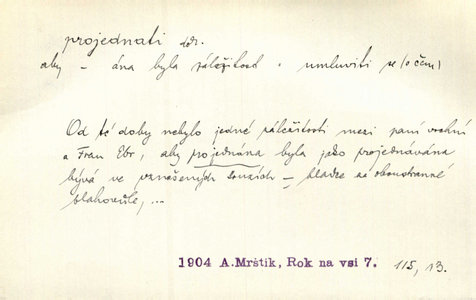 projednati dok.
aby – ána byla záležitost · umluviti se (o čem)
Od té doby nebylo jedné záležitosti mezi paní vrchní
a Fran Ebr, aby projednána byla jako projednávána
bývá ve vznešených – hladce na oboustranné
blahovůle, ...
1904 A.Mrštík, Rok na vsi 7. 115, 13.